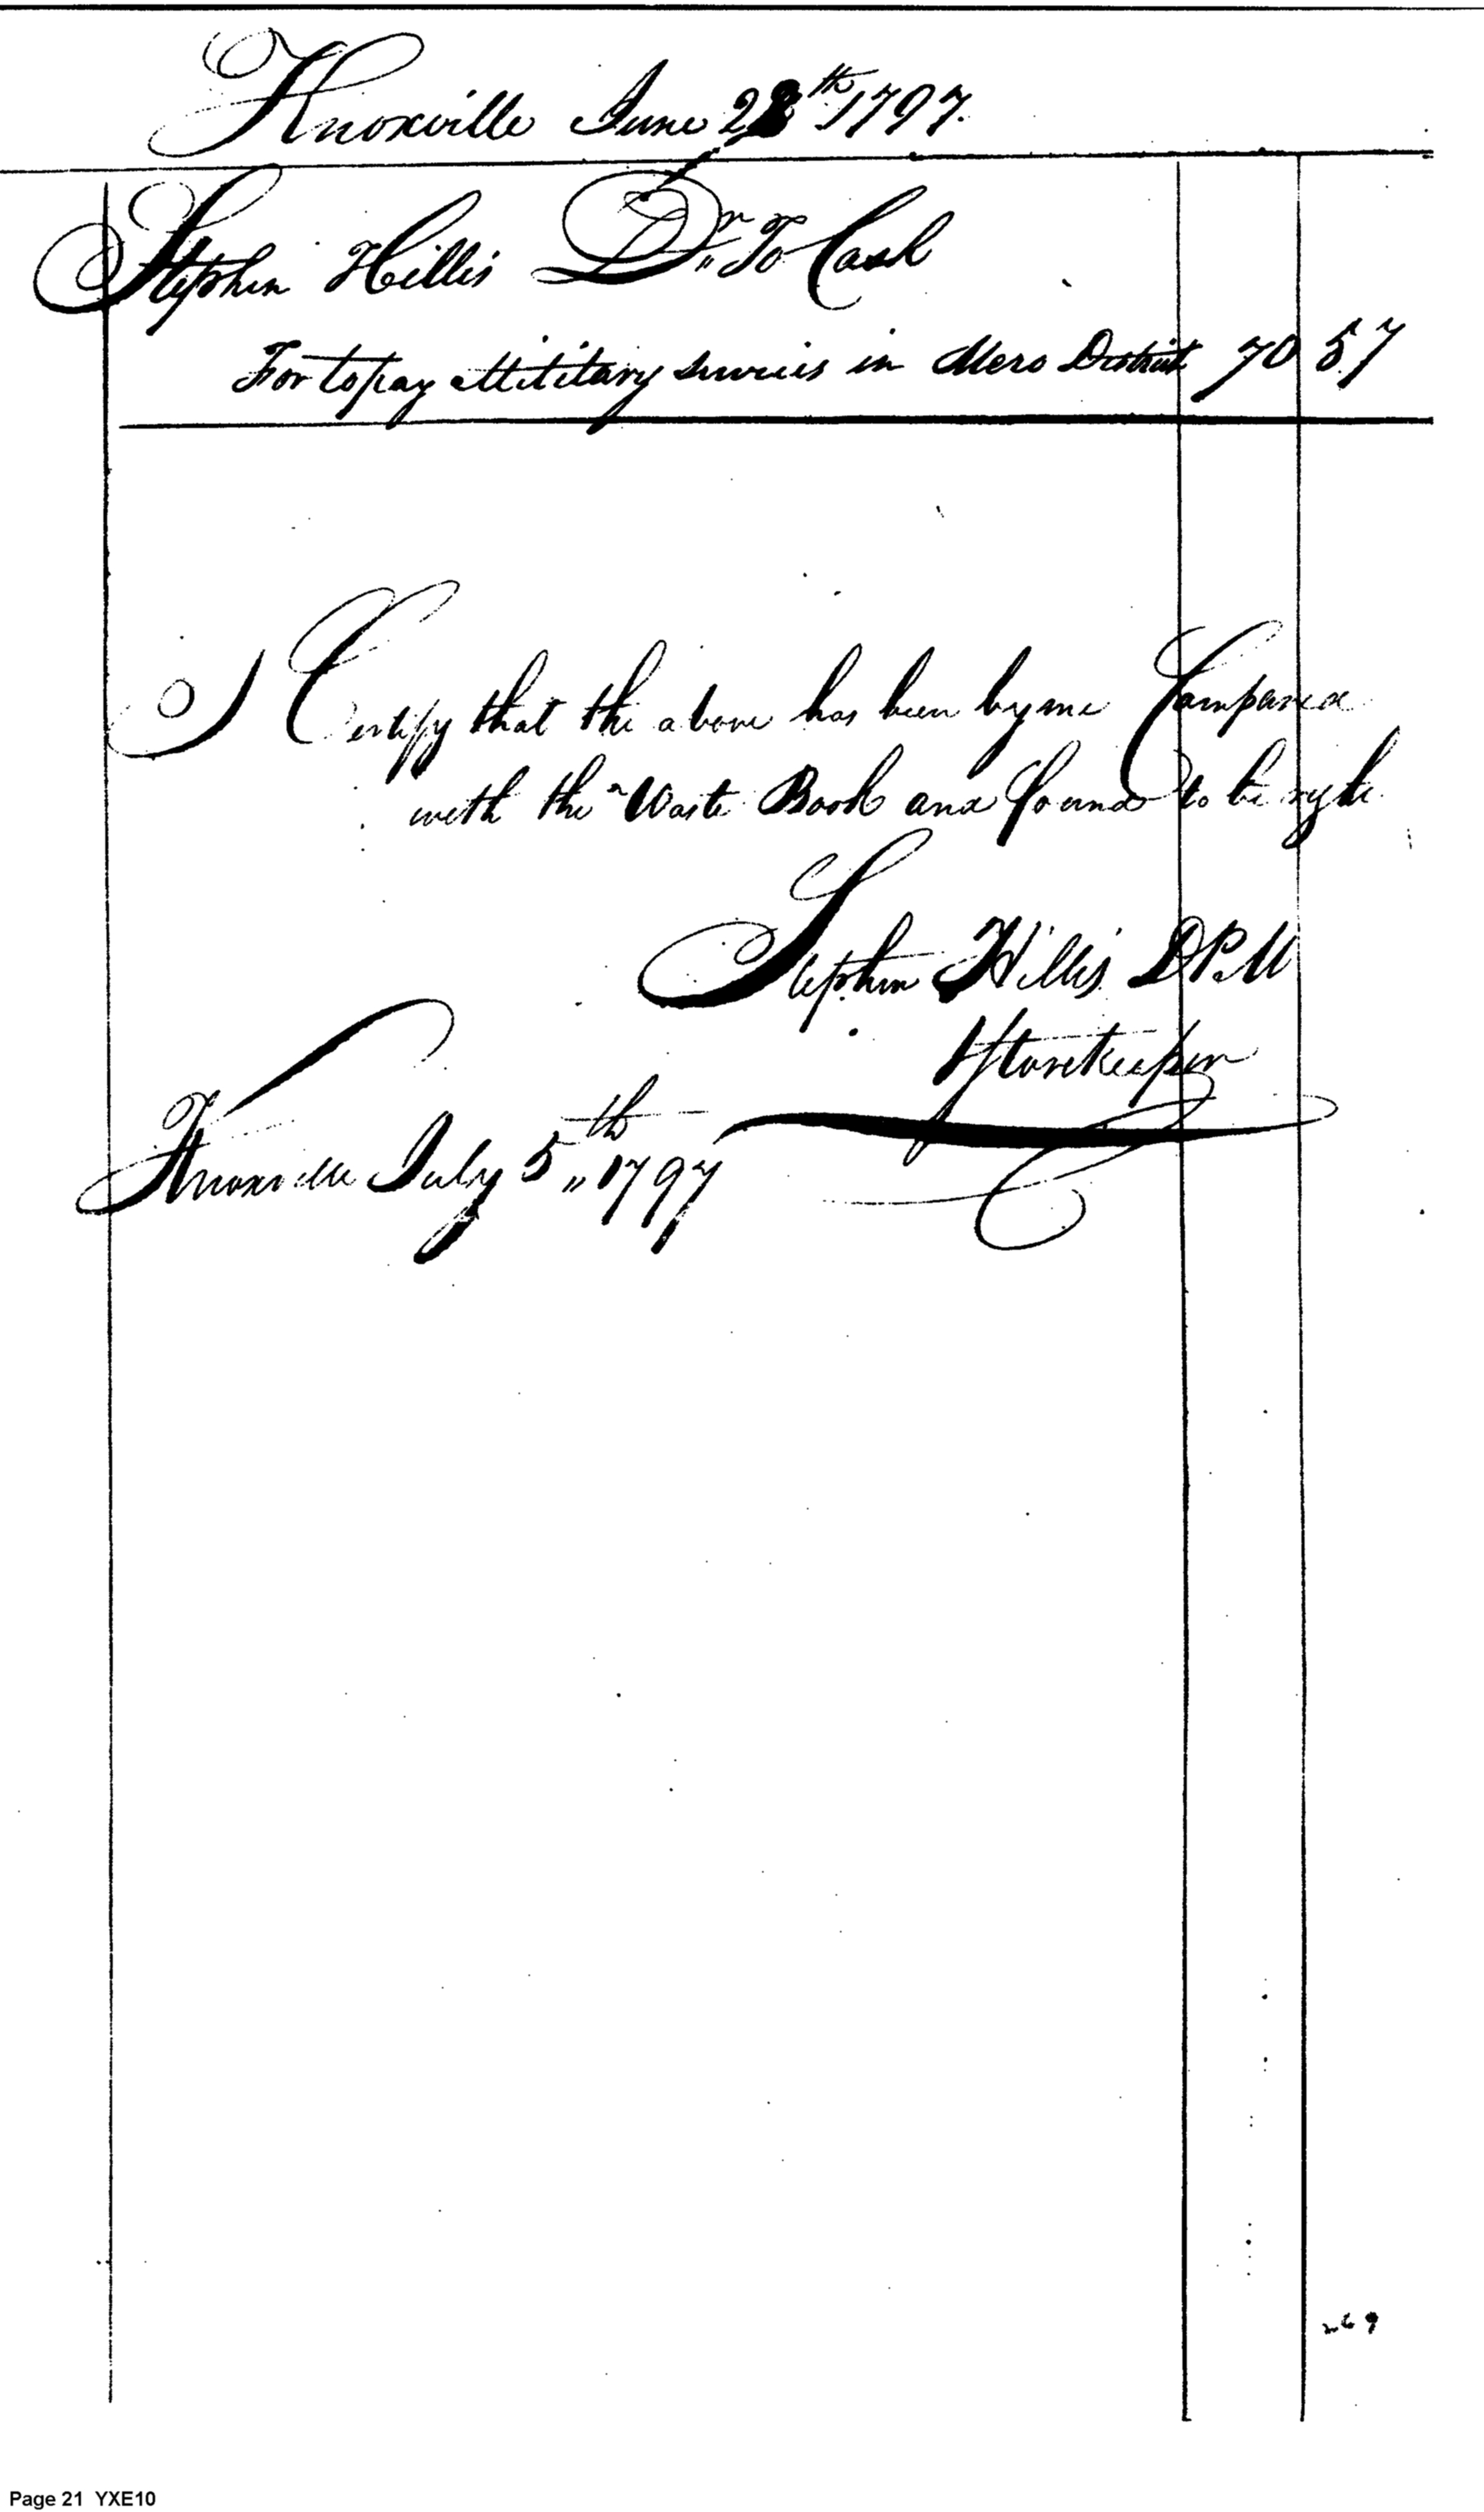 Knoxville June 28th 1797.
Stephen Hillis Dr. To Cash
For to pay Military services in Mero District 70 57
I Certify that the above has been by me Compared
with the Waste Book and found to be right
Stephen Hillis D.P.M
Storekeeper
Knoxville July 5th 1797
269
Page 21 YXE10